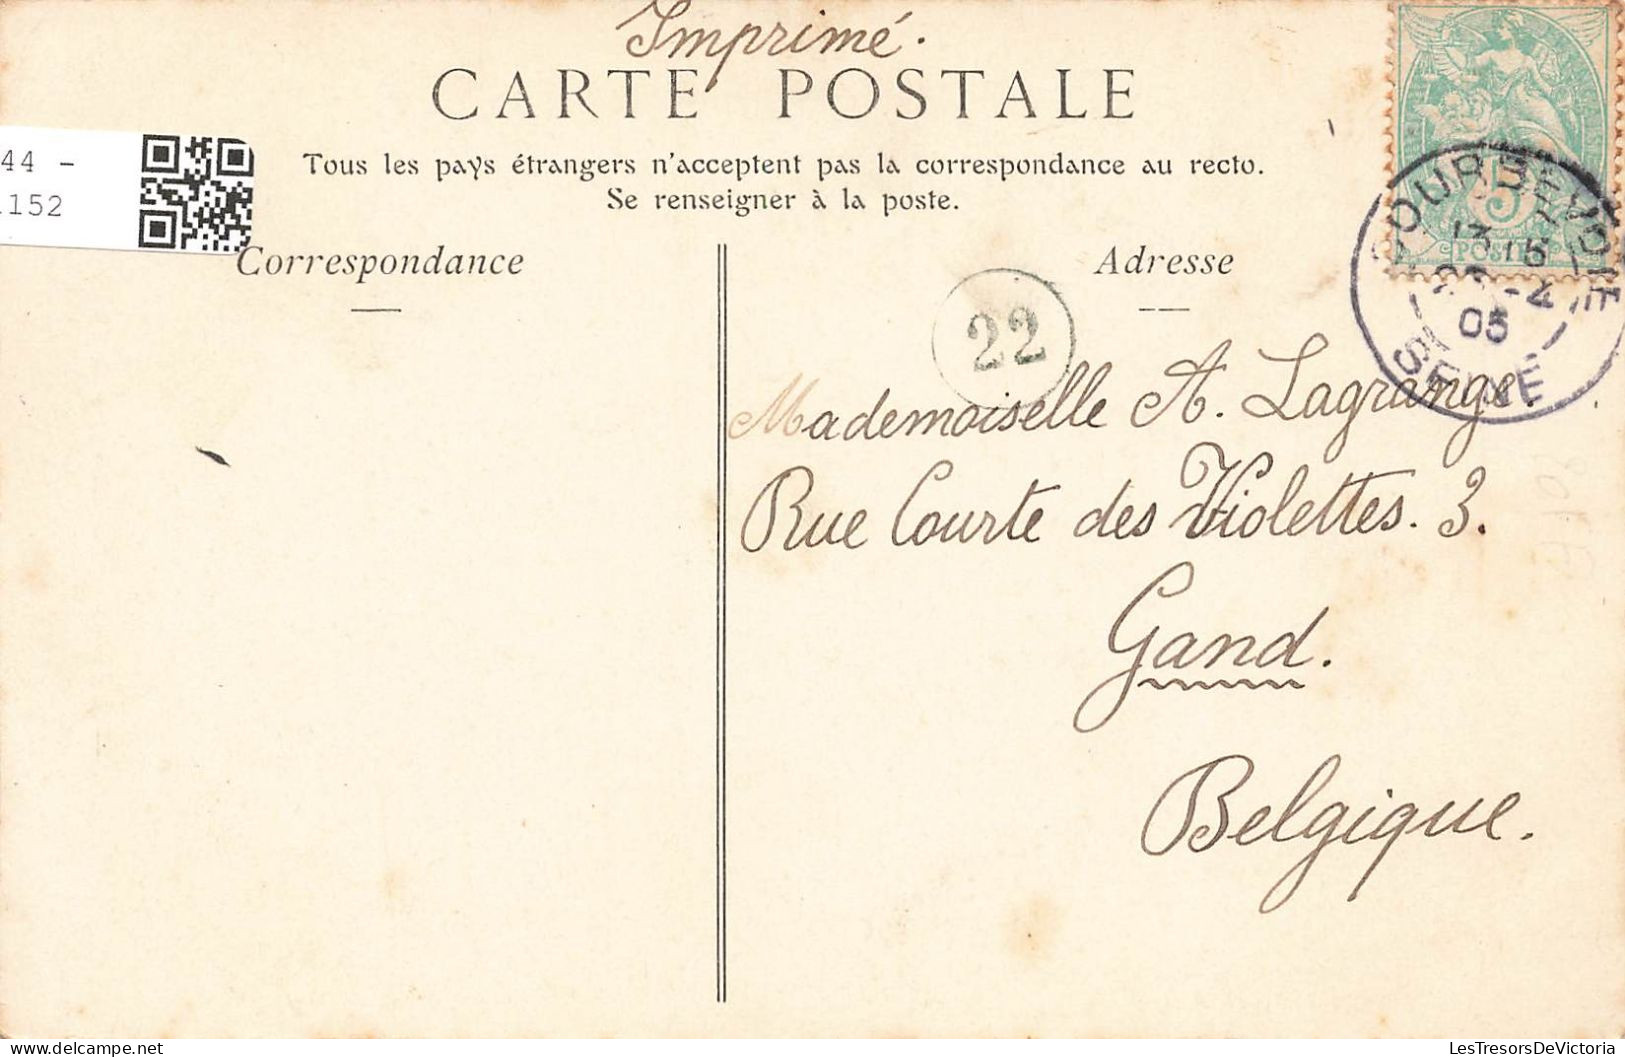 Imprimé.
CARTE POSTALE
44 -
152
Tous les pays étrangers n'acceptent pas la correspondance au recto.
Se renseigner à la poste.
Correspondance
Adresse
5
POSTE
COURBEVOIE
05
SEINE
22
Mademoiselle A. Lagrange.
Rue Courte des Violettes. 3.
Gand.
Belgique.
LesTresorsDeVictoria